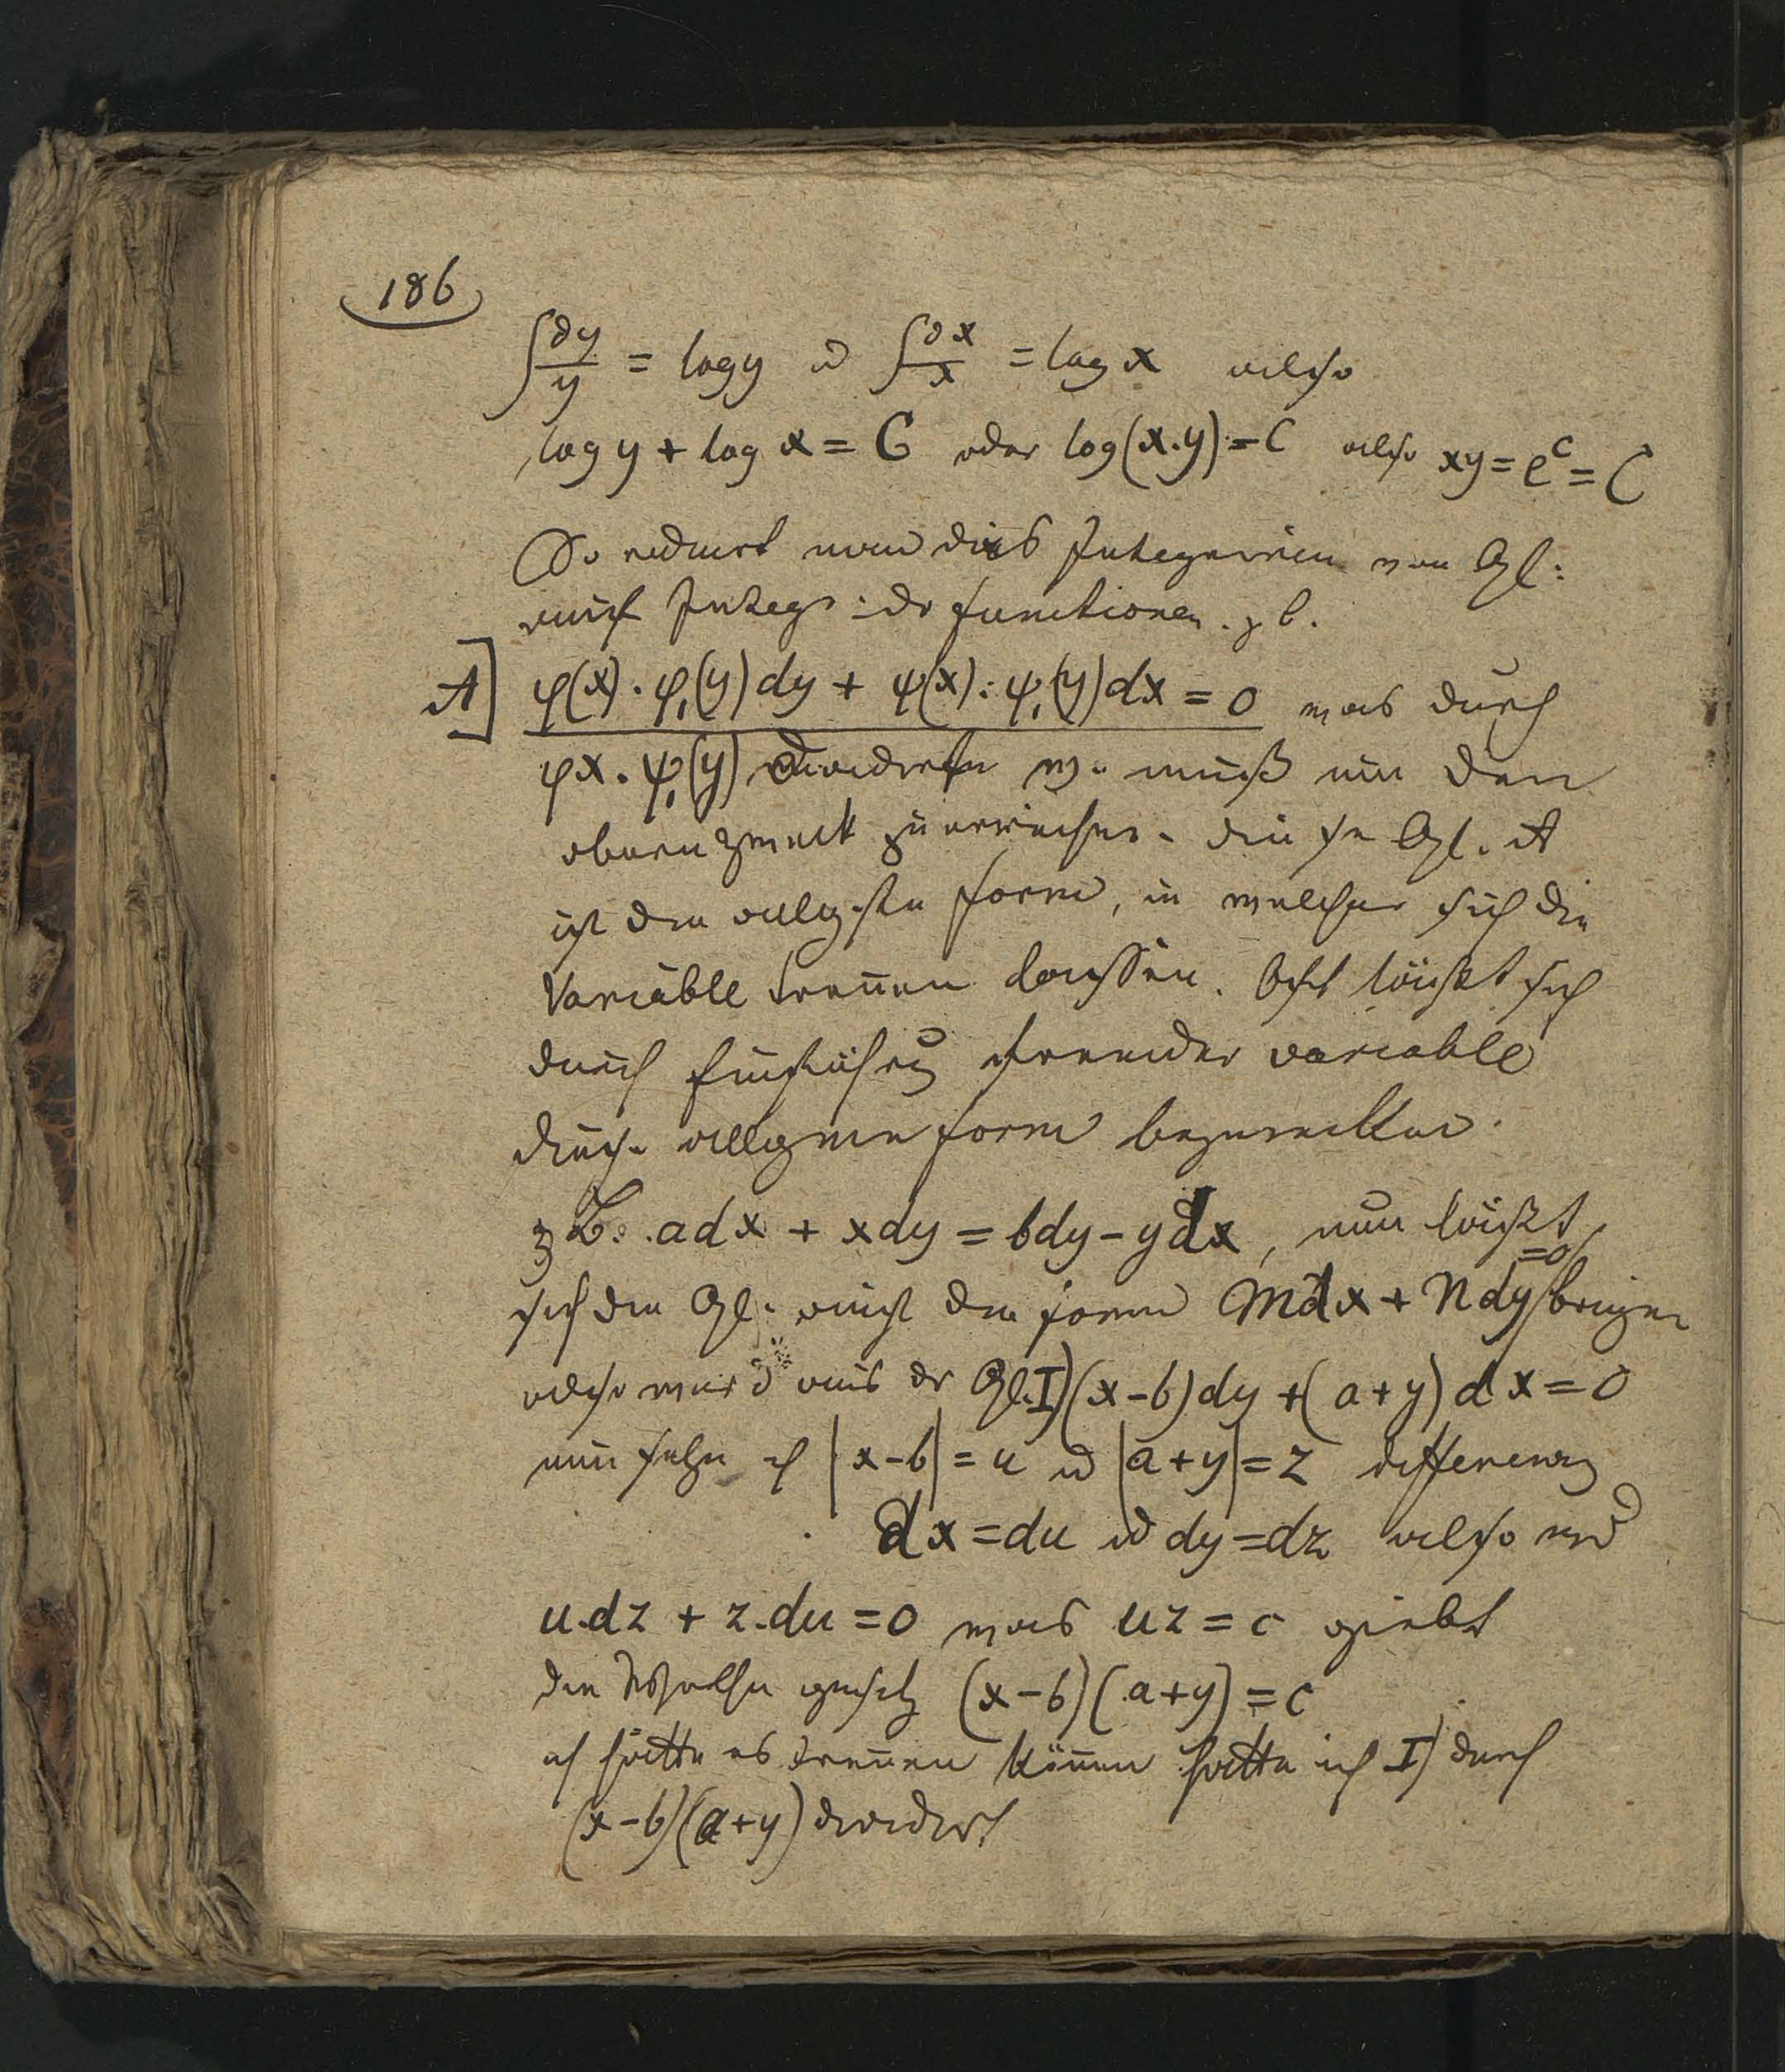 186
∫∂y/y = log y u ∫∂x/x = log x also
log y + log x = C oder log(x.y) = C also xy = e^c = C
So reducirt man das Integriren von Gl:
auf Integr: dr functionen. z b.
A] φ(x).φ,(y)dy + ψ(x).ψ,(y)dx = 0 was durch
φx.ψ,(y) dividirt w. muß um den
obern Zweck zu erreichen. diese Gl. A
ist die allgste Form, in welcher sich die
Variable trennen lassen. Oft läßt sich
durch Einführg fremder variable
diese allgmeine form bezwecken.
z B: adx + xdy = bdy - ydx, nun läßt
sich die Gl. auf die form Mdx + Ndy =0 bringen
also wird aus dr Gl. I) (x-b)dy + (a+y)dx = 0
nun setze ich |x-b| = u u |a+y| = z
dx = du u dy = dz also wd
u.dz + z.du = 0 was uz = c giebt
die Werthe gesetz (x-b)(a+y) = c
ich hätte es trennen können hätte ich I) durch
(x-b)(a+y) dividirt